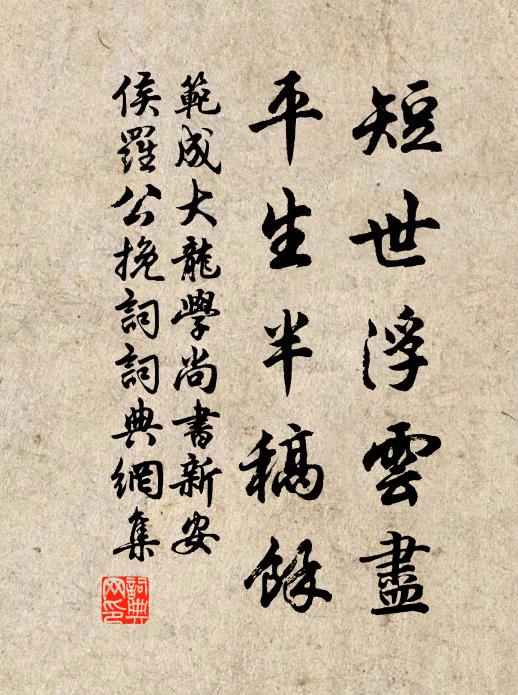 短世浮雲盡
平生半稿餘
範成大龍學尚書新安
侯羅公挽詞詞典網集
詞典网印